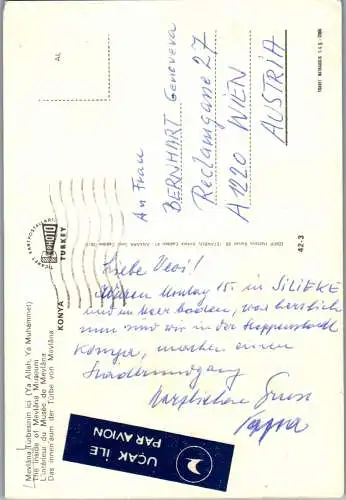 Mevlâna Türbesinin içi (Ya Allah, Ya Muhammet)
The inside of Mevlâna Museum
L'intérieur du Musée de Mevlâna
Das innenraum der Türbe von Mevlâna
KONYA TURKEY
42-3
TİCARET KARTPOSTALLARI
AL
An Frau
BERNHART Genoveva
Reclamgasse 27
A 1220 WIEN
AUSTRIA
Liebe Vevi!
Waren Montag 15. in SILIFKE
und im Meer baden, war herrlich
nun sind wir in der Steppenstadt
Konya, machen einen
Stadtrundgang
Herzlichen Gruss
UÇAK İLE
PAR AVION